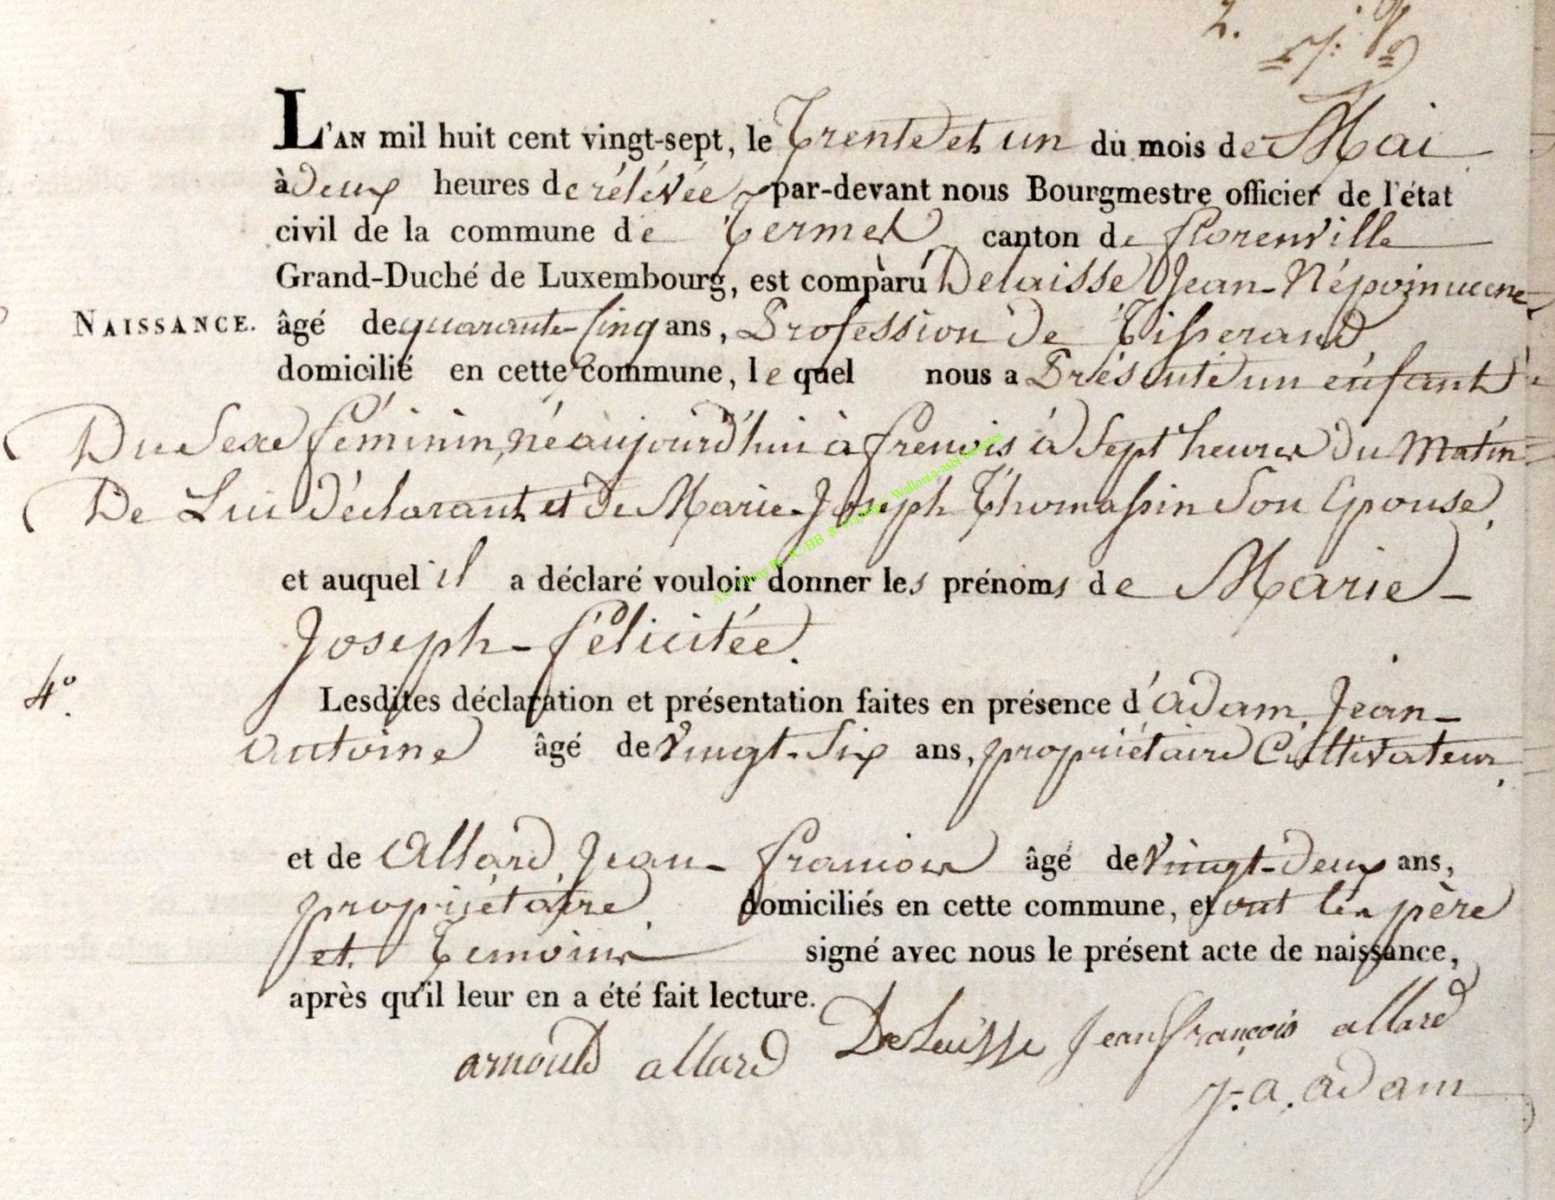 2.
L'AN mil huit cent vingt-sept, le Trente et un du mois de Mai
à deux heures de rélévée par-devant nous Bourgmestre officier de l'état
civil de la commune de Termes canton de florenville
Grand-Duché de Luxembourg, est comparu Delaisse Jean-Népomucene
NAISSANCE. âgé de quarante-Cinq ans, Profession de Tisserand
domicilié en cette commune, le quel nous a Présenté un enfant
Du Sexe féminin, né aujourd'hui à frenois à Sept heures du Matin
De Lui déclarant et de Marie-Joseph Thomassin Son Epouse,
et auquel il a déclaré vouloir donner les prénoms de Marie-
Joseph-félicitée.
4° Lesdites déclaration et présentation faites en présence d'adam, Jean-
antoine âgé de vingt-Six ans, propriétaire Cultivateur,
et de Allard, Jean-francois âgé de vingt-deux ans,
propriétaire. domiciliés en cette commune, et ont les père
et Temoins signé avec nous le présent acte de naissance,
après qu'il leur en a été fait lecture.
arnould allard DeLaisse Jean françois allard
J. a. adam